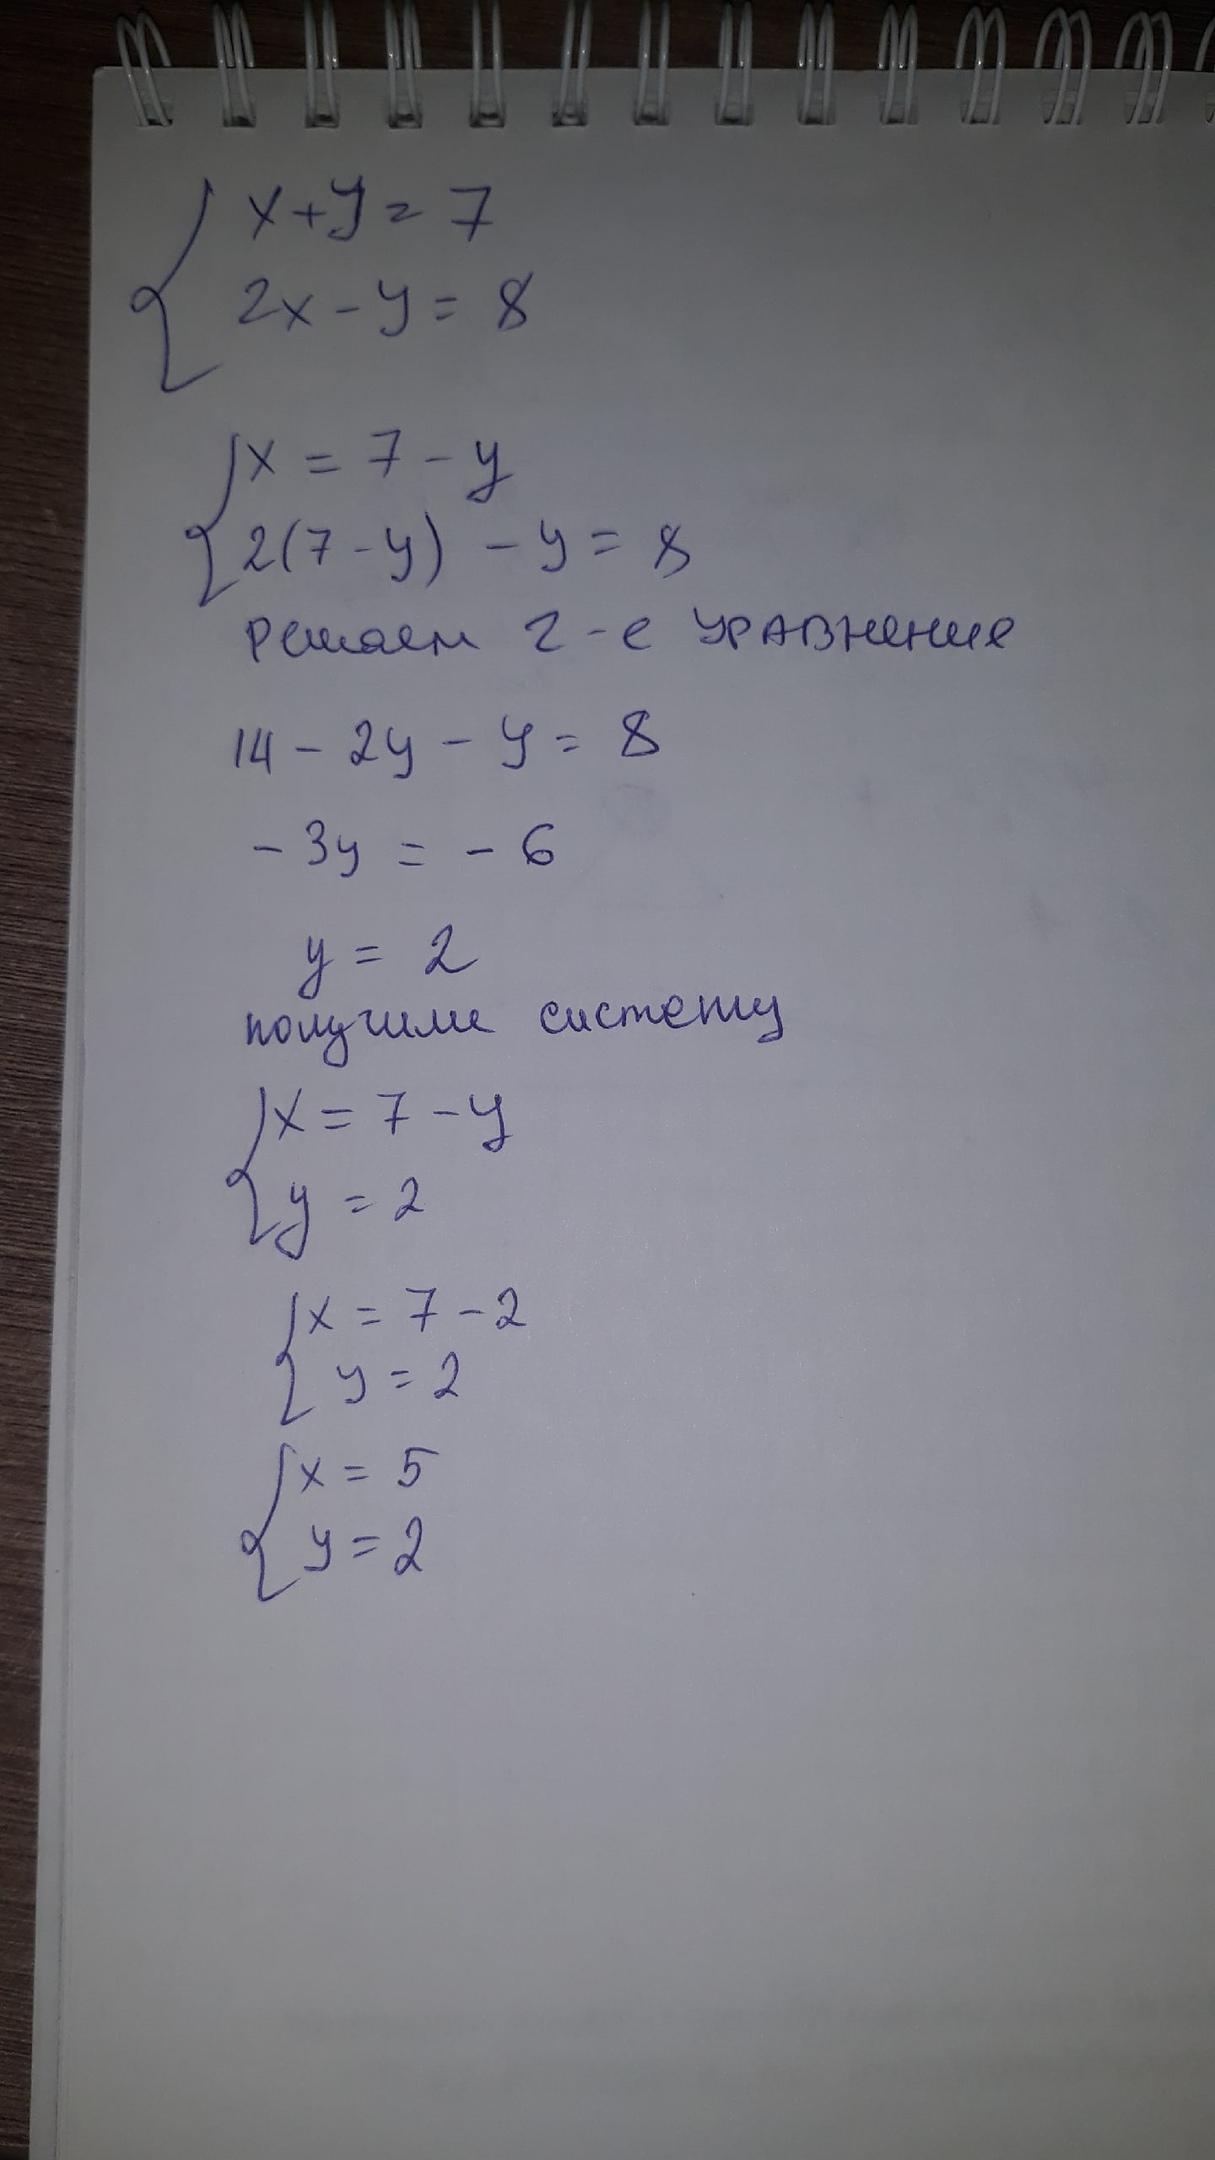 x+y=7
2x-y=8
x=7-y
2(7-y)-y=8
Решаем 2-е уравнение
14-2y-y=8
-3y=-6
y=2
получим систему
x=7-y
y=2
x=7-2
y=2
x=5
y=2